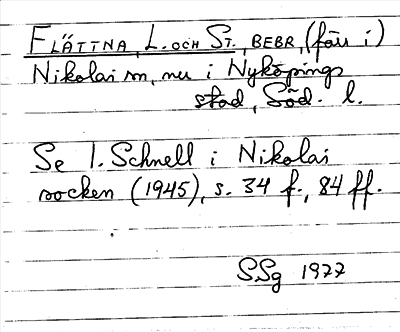 FLÄTTNA, L. OCH ST., BEBR, (förr i)
Nikolai sn, nu i Nyköpings
stad, Söd. l.
Se I. Schnell i Nikolai
socken (1945), s. 34 f., 84 ff.
SSg 1977